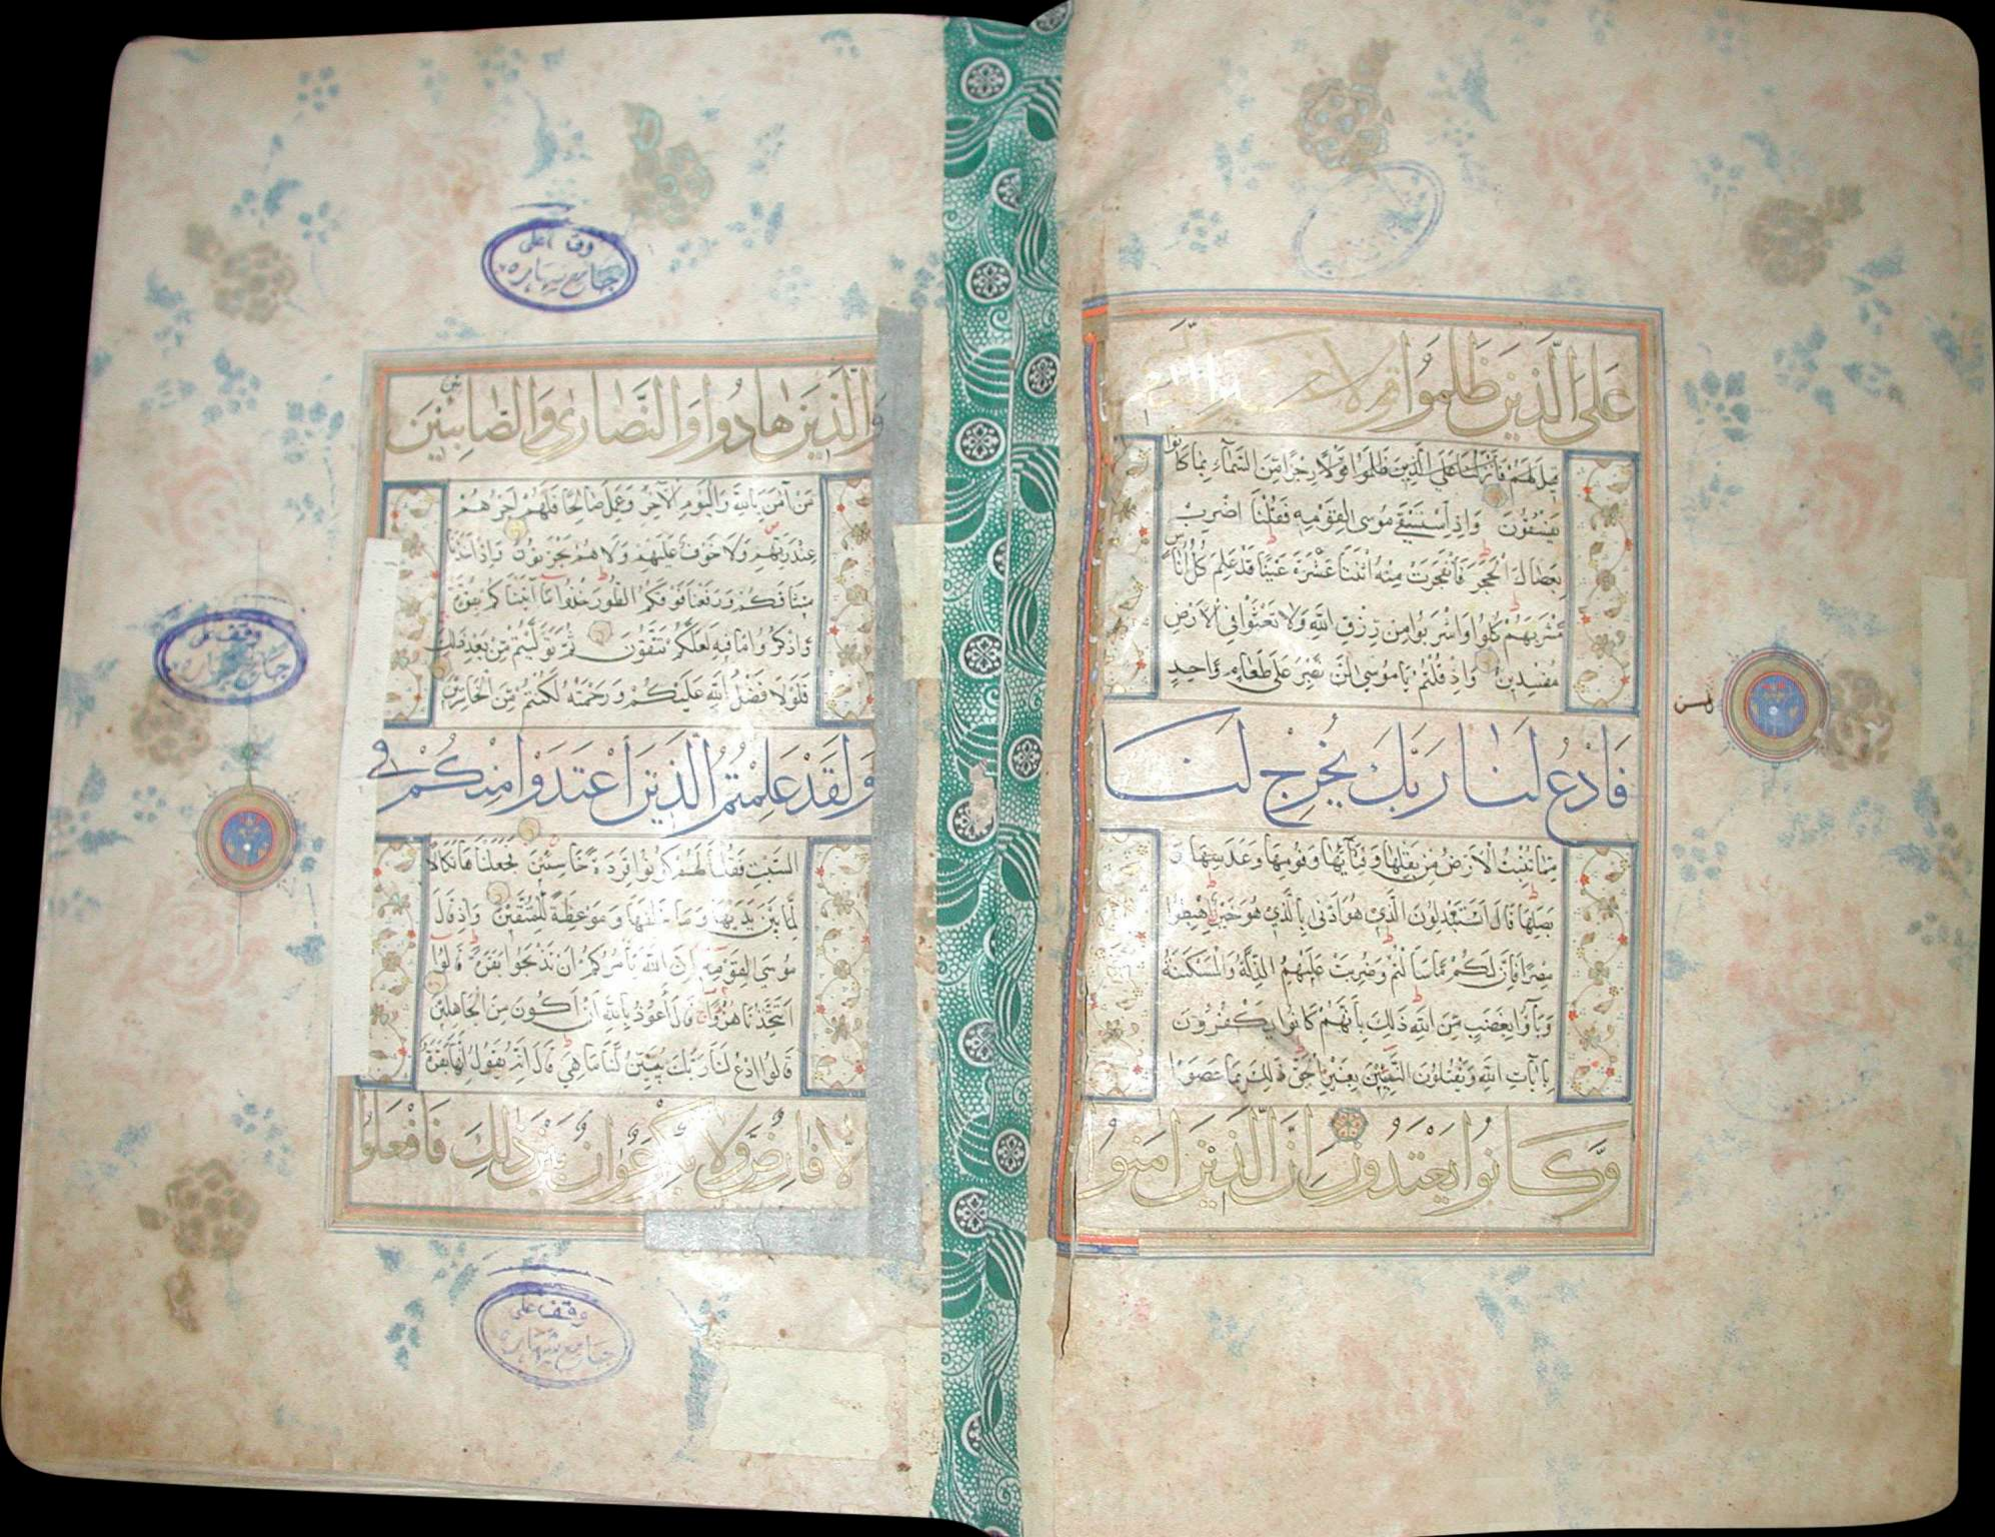 على الذين ظلموا قولا غير الذي
قيل لهم فأنزلنا على الذين ظلموا قولا رجزا من السماء بما كانوا
يفسقون وإذ استسقى موسى لقومه فقلنا اضرب
بعصاك الحجر فانفجرت منه اثنتا عشرة عينا قد علم كل أناس
مشربهم كلوا واشربوا من رزق الله ولا تعثوا في الأرض
مفسدين وإذ قلتم يا موسى لن نصبر على طعام واحد
فادع لنا ربك يخرج لنا
مما تنبت الأرض من بقلها وقثائها وفومها وعدسها و
بصلها قال أتستبدلون الذي هو أدنى بالذي هو خير اهبطوا
مصرا فإن لكم ما سألتم وضربت عليهم الذلة والمسكنة
وباؤا بغضب من الله ذلك بأنهم كانوا يكفرون
بآيات الله ويقتلون النبيين بغير الحق ذلك بما عصوا
وكانوا يعتدون إن الذين آمنوا
والذين هادوا والنصارى والصابئين
من آمن بالله واليوم الآخر وعمل صالحا فلهم أجرهم
عند ربهم ولا خوف عليهم ولا هم يحزنون وإذ أخذنا
ميثاقكم ورفعنا فوقكم الطور خذوا ما آتيناكم بقوة
واذكروا ما فيه لعلكم تتقون ثم توليتم من بعد ذلك
فلولا فضل الله عليكم ورحمته لكنتم من الخاسرين
ولقد علمتم الذين اعتدوا منكم في
السبت فقلنا لهم كونوا قردة خاسئين فجعلناها نكالا
لما بين يديها وما خلفها وموعظة للمتقين وإذ قال
موسى لقومه إن الله يأمركم أن تذبحوا بقرة قالوا
أتتخذنا هزوا قال أعوذ بالله أن أكون من الجاهلين
قالوا ادع لنا ربك يبين لنا ما هي قال إنه يقول إنها بقرة
لا فارض ولا بكر عوان بين ذلك فافعلوا
وقف على
جامع شهاره
وقف على
جامع شهاره
وقف على
جامع شهاره